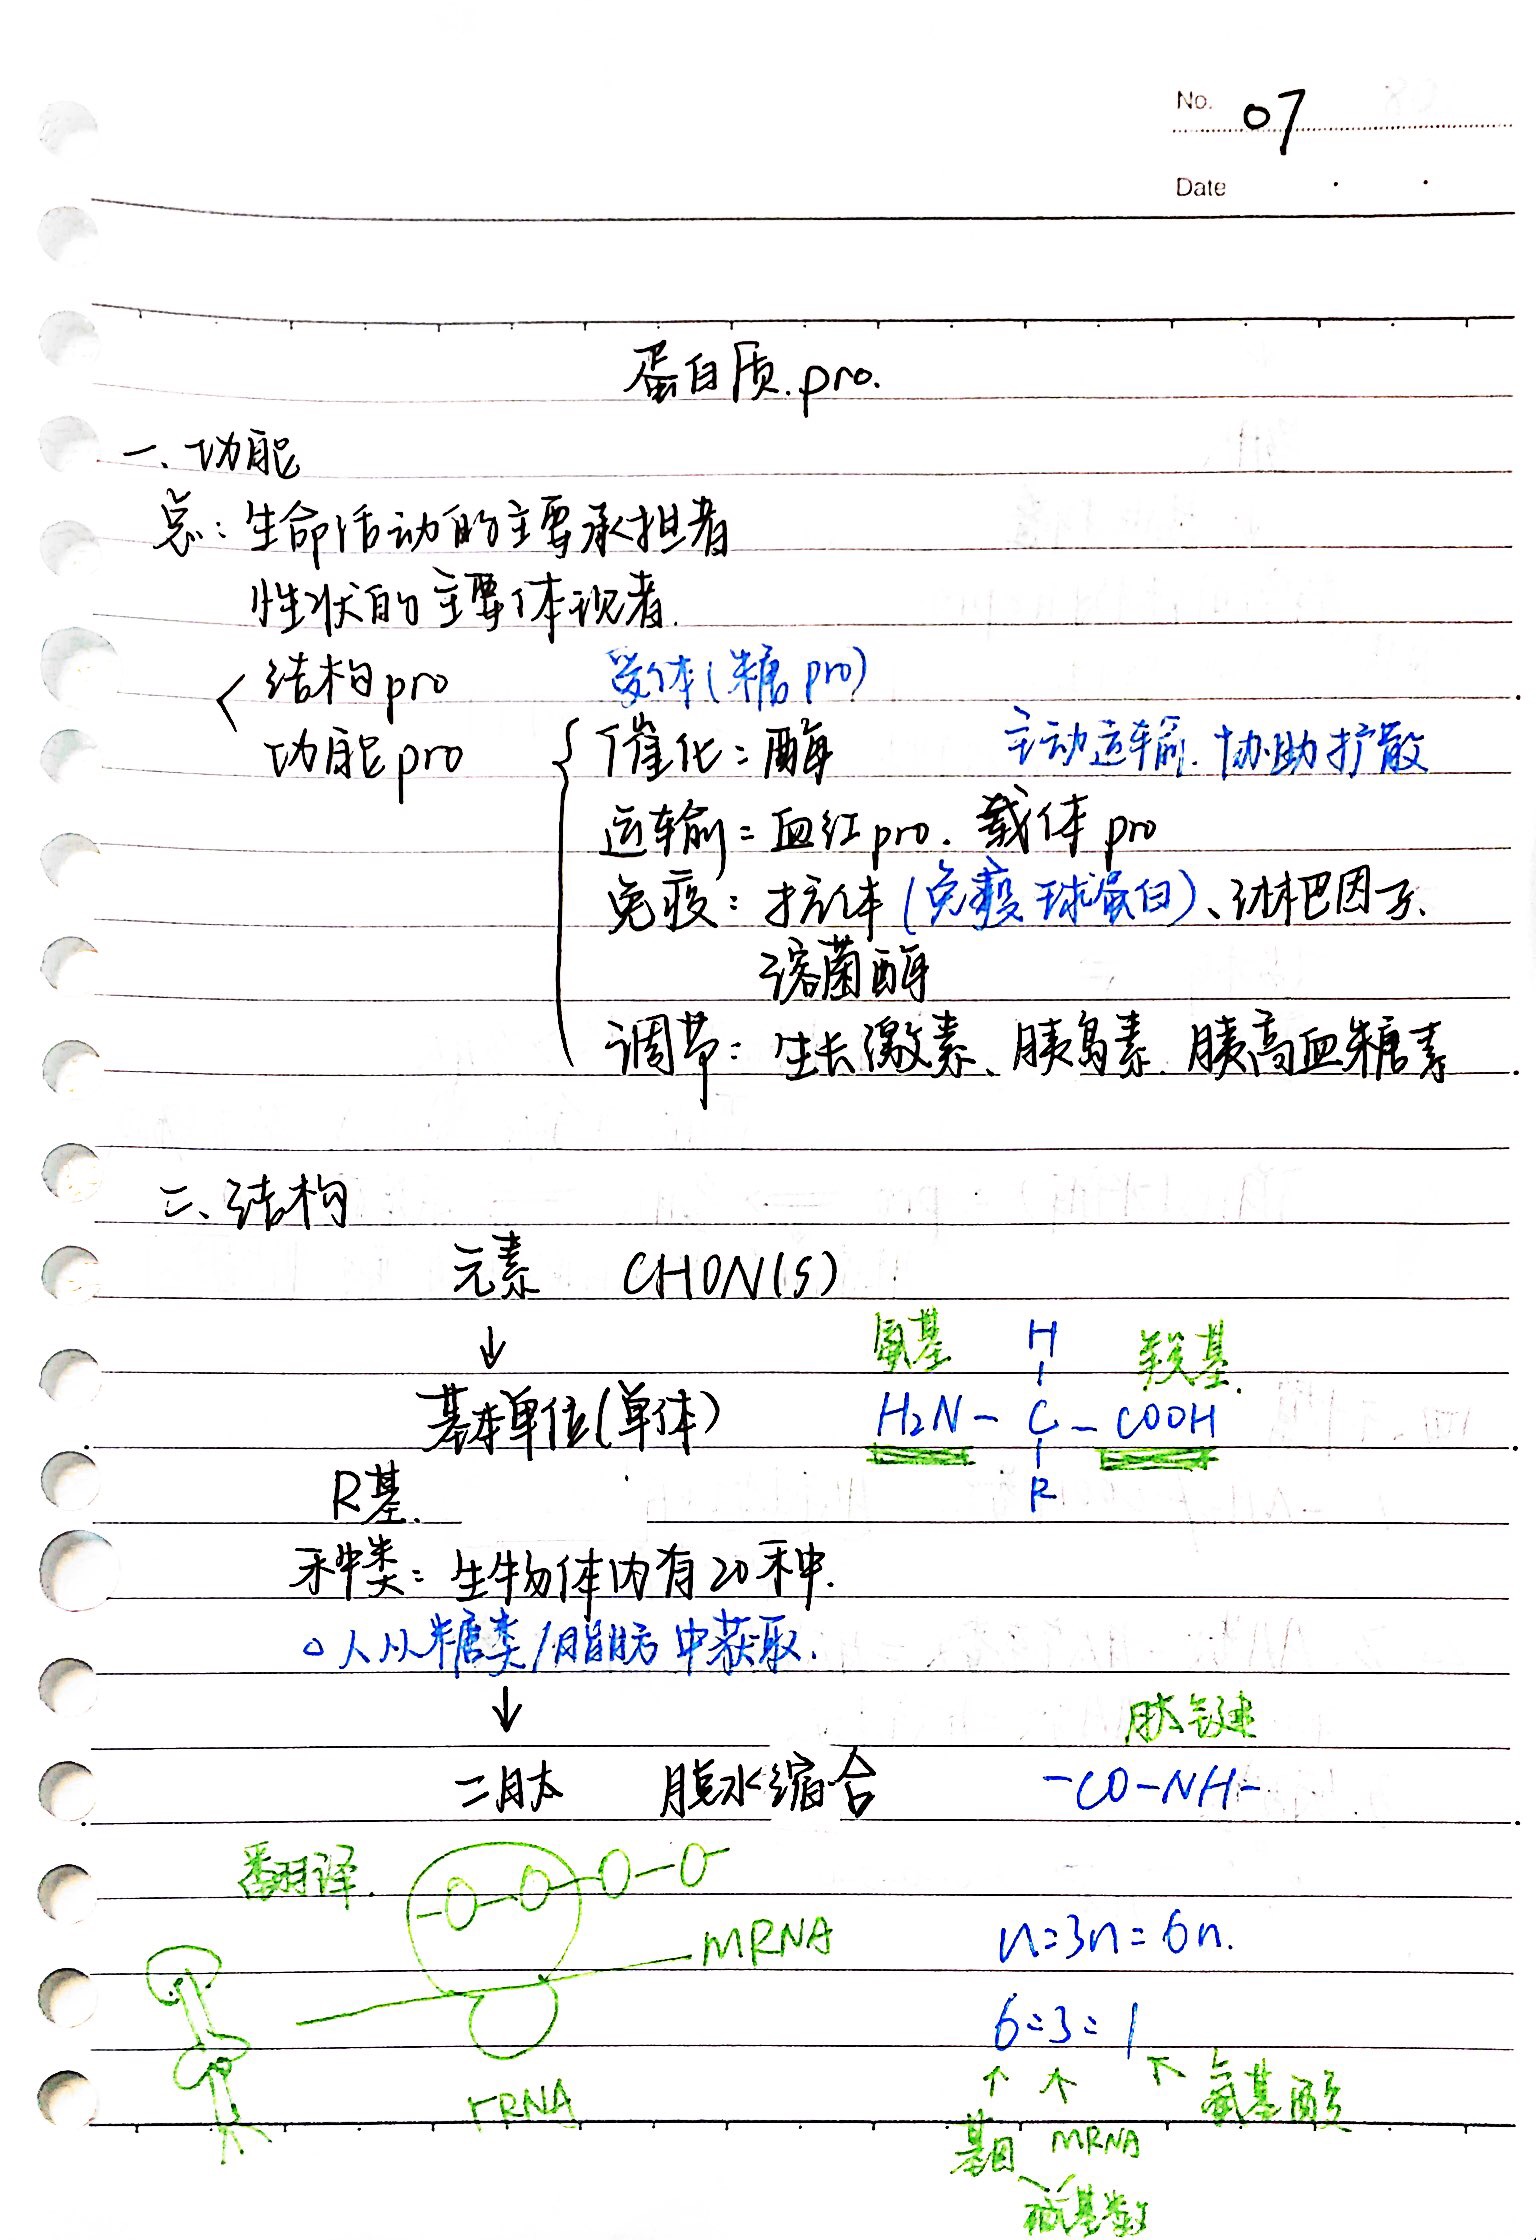 No. 07
Date
蛋白质.pro.
一、功能
总：生命活动的主要承担者
性状的主要体现者.
结构pro 受体(糖pro)
功能pro 催化：酶 主动运输.协助扩散
运输：血红pro. 载体pro
免疫：抗体(免疫球蛋白)、淋巴因子.
溶菌酶
调节：生长激素、胰岛素.胰高血糖素
二、结构
元素 CHON(S)
↓
氨基 H 羧基.
基本单位(单体) H₂N-C-COOH
R基. R
种类：生物体内有20种.
○人从糖类/脂肪中获取.
↓
肽键
二肽 脱水缩合 -CO-NH-
翻译.
MRNA n:3n:6n.
6:3:1
rRNA ↑ ↑ ↖ 氨基酸
基因 MRNA
碱基数